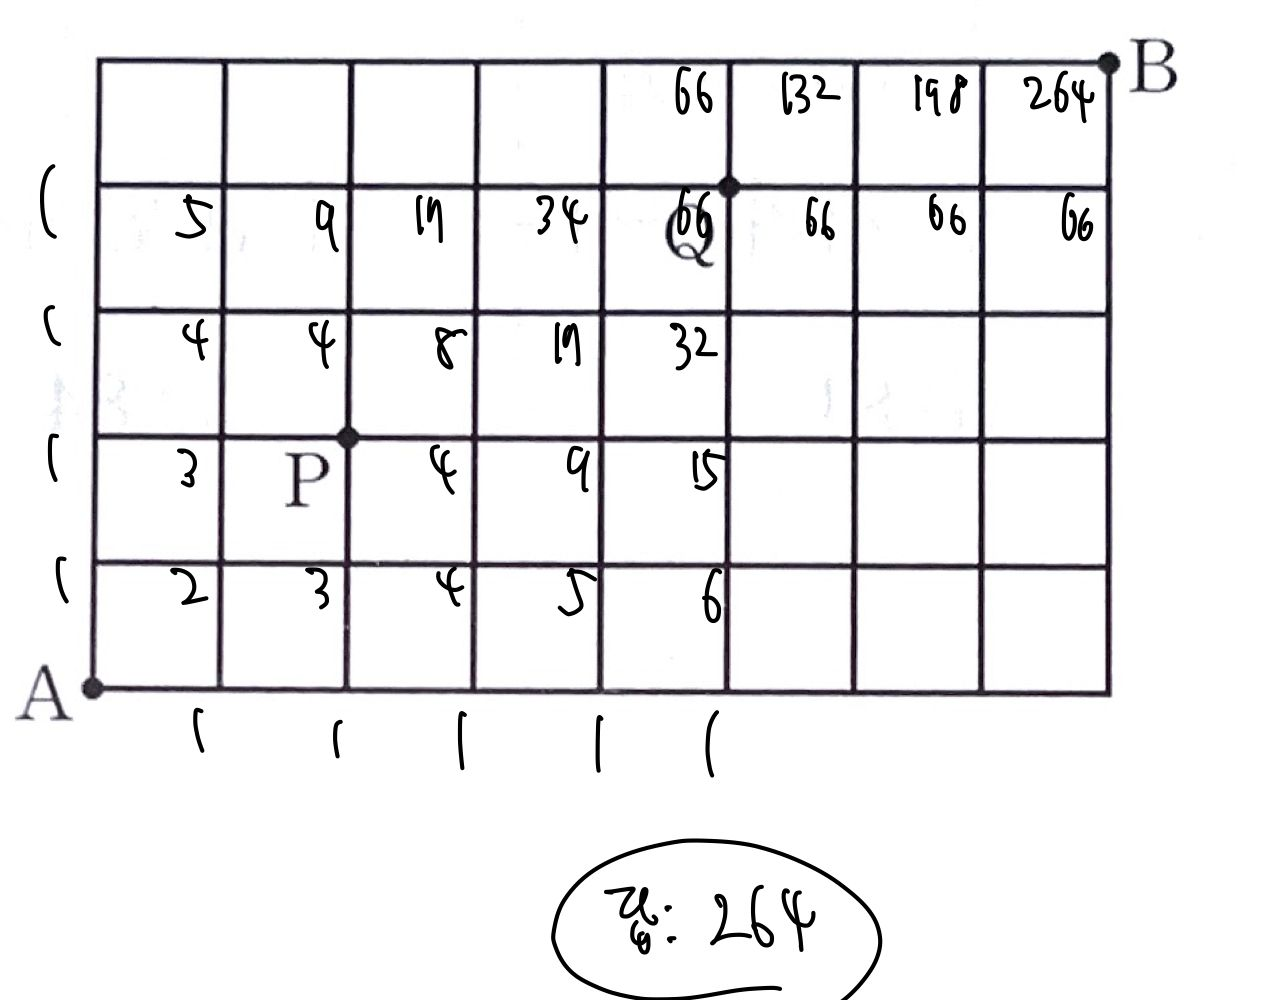 B
66 132 198 264
1 5 9 17 34 66 66 66 66
Q
1 4 4 8 17 32
1 3 4 9 15
P
1 2 3 4 5 6
A
1 1 1 1 1
답: 264